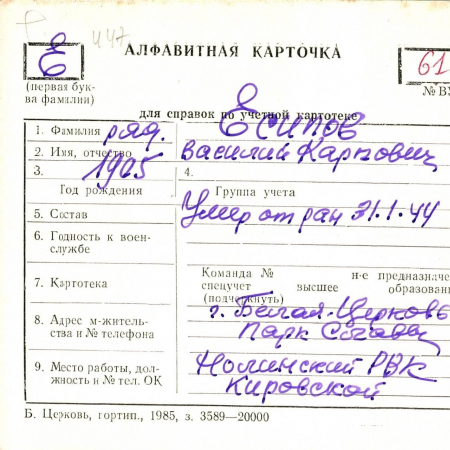 Е
АЛФАВИТНАЯ КАРТОЧКА
61
(первая бук-
ва фамилии)
для справок по учетной картотеке
1. Фамилия ряд. Есипов
2. Имя, отчество Василий Карпович
3. 1925 4.
Год рождения Группа учета
5. Состав Умер от ран 31.1.44
6. Годность к воен-
службе
7. Картотека
Команда № н-е предназначе
спецучет высшее образован
(подчеркнуть)
8. Адрес м-житель-
ства и № телефона
г. Белая-Церковь
Парк
9. Место работы, дол-
жность и № тел. ОК
Нолинский РВК
Кировской
Б. Церковь, гортип., 1985, з. 3589—20000